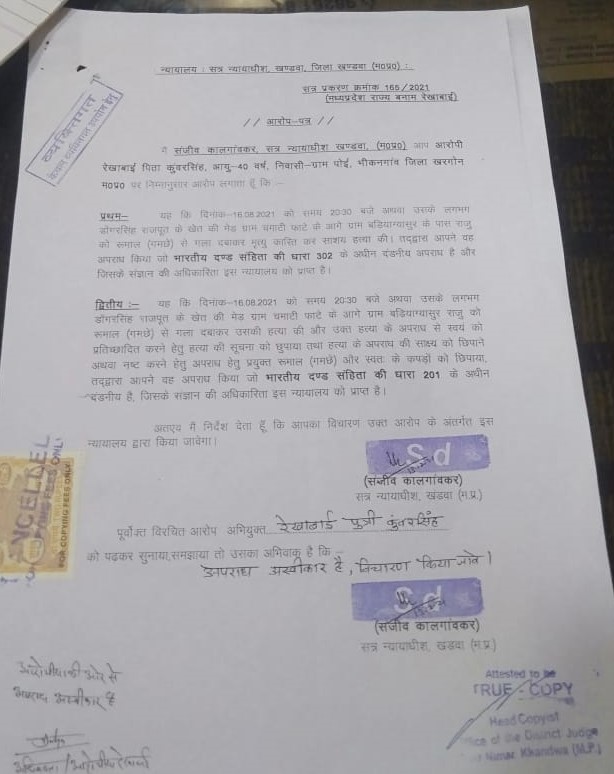 न्यायालय : सत्र न्यायाधीश, खण्डवा, जिला खण्डवा (म0प्र0) :
सत्र प्रकरण क्रमांक 165/2021
(मध्यप्रदेश राज्य बनाम रेखाबाई)
व्यक्तिगत
// आरोप-पत्र //
मैं संजीव कालगांवकर, सत्र न्यायाधीश खण्डवा, (म0प्र0) आप आरोपी
रेखाबाई पिता कुंवरसिंह, आयु-40 वर्ष, निवासी-ग्राम पोई, भीकनगांव जिला खरगोन
म0प्र0 पर निम्नानुसार आरोप लगाता हूँ कि :-
प्रथम- यह कि दिनांक-16.08.2021 को समय 20:30 बजे अथवा उसके लगभग
डोंगरसिंह राजपूत के खेत की मेड ग्राम चमाटी फाटे के आगे ग्राम बडियाग्यासुर के पास राजु
को रूमाल (गमछे) से गला दबाकर मृत्यु कारित कर साशय हत्या की। तद्द्वारा आपने वह
अपराध किया जो भारतीय दण्ड संहिता की धारा 302 के अधीन दंडनीय अपराध है और
जिसके संज्ञान की अधिकारिता इस न्यायालय को प्राप्त है।
द्वितीय :- यह कि दिनांक-16.08.2021 को समय 20:30 बजे अथवा उसके लगभग
डोंगरसिंह राजपूत के खेत की मेड ग्राम चमाटी फाटे के आगे ग्राम बडियाग्यासुर राजु को
रूमाल (गमछे) से गला दबाकर उसकी हत्या की और उक्त हत्या के अपराध से स्वयं को
प्रतिच्छादित करने हेतु हत्या की सूचना को छुपाया तथा हत्या के अपराध की साक्ष्य को छिपाने
अथवा नष्ट करने हेतु अपराध हेतु प्रयुक्त रूमाल (गमछे) और स्वतः के कपड़ों को छिपाया,
तद्द्वारा आपने वह अपराध किया जो भारतीय दण्ड संहिता की धारा 201 के अधीन
दंडनीय है, जिसके संज्ञान की अधिकारिता इस न्यायालय को प्राप्त है।
अतएव मैं निर्देश देता हूँ कि आपका विचारण उक्त आरोप के अंतर्गत इस
न्यायालय द्वारा किया जावेगा।
Sd
(संजीव कालगांवकर)
सत्र न्यायाधीश, खंडवा (म.प्र.)
FOR COPYING FEES ONLY
पूर्वोक्त विरचित आरोप अभियुक्त रेखाबाई पुत्री कुंवरसिंह
को पढ़कर सुनाया,समझाया तो उसका अभिवाक् है कि :-
अपराध अस्वीकार है, विचारण किया जावे।
Sd
(संजीव कालगांवकर)
सत्र न्यायाधीश, खंडवा (म.प्र.)
की ओर से
अस्वीकार है
Attested to be
TRUE - COPY
Head Copyist
Office of the District Judge
Nimar Khandwa (M.P.)